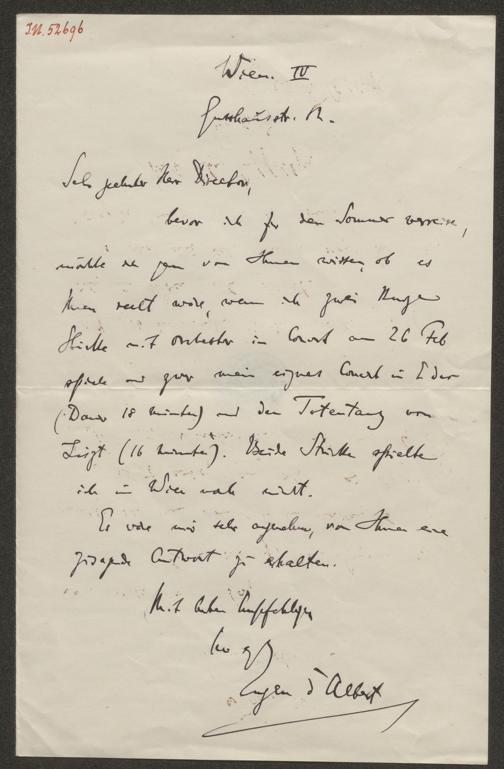 I.N. 52696
Wien. IV
Gusshausstr. 12.
Sehr geehrter Herr Director,
bevor ich für den Sommer verreise,
möchte ich gern von Ihnen wissen, ob es
Ihnen recht wäre, wenn ich zwei
Stücke mit Orchester im Concert am 26 Feb
spiele und zwar mein eignes Concert in E dur
(Dauer 18 Minuten) und den Totentanz von
Liszt (16 Minuten). Beide Stücke spielte
ich in Wien noch nicht.
Es wäre mir sehr angenehm, von Ihnen eine
zusagende Antwort zu erhalten.
Mit besten Empfehlungen
Eugen d'Albert